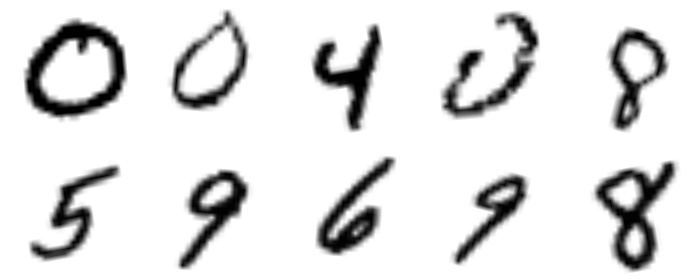 0 0 4 0 8
5 9 6 9 8